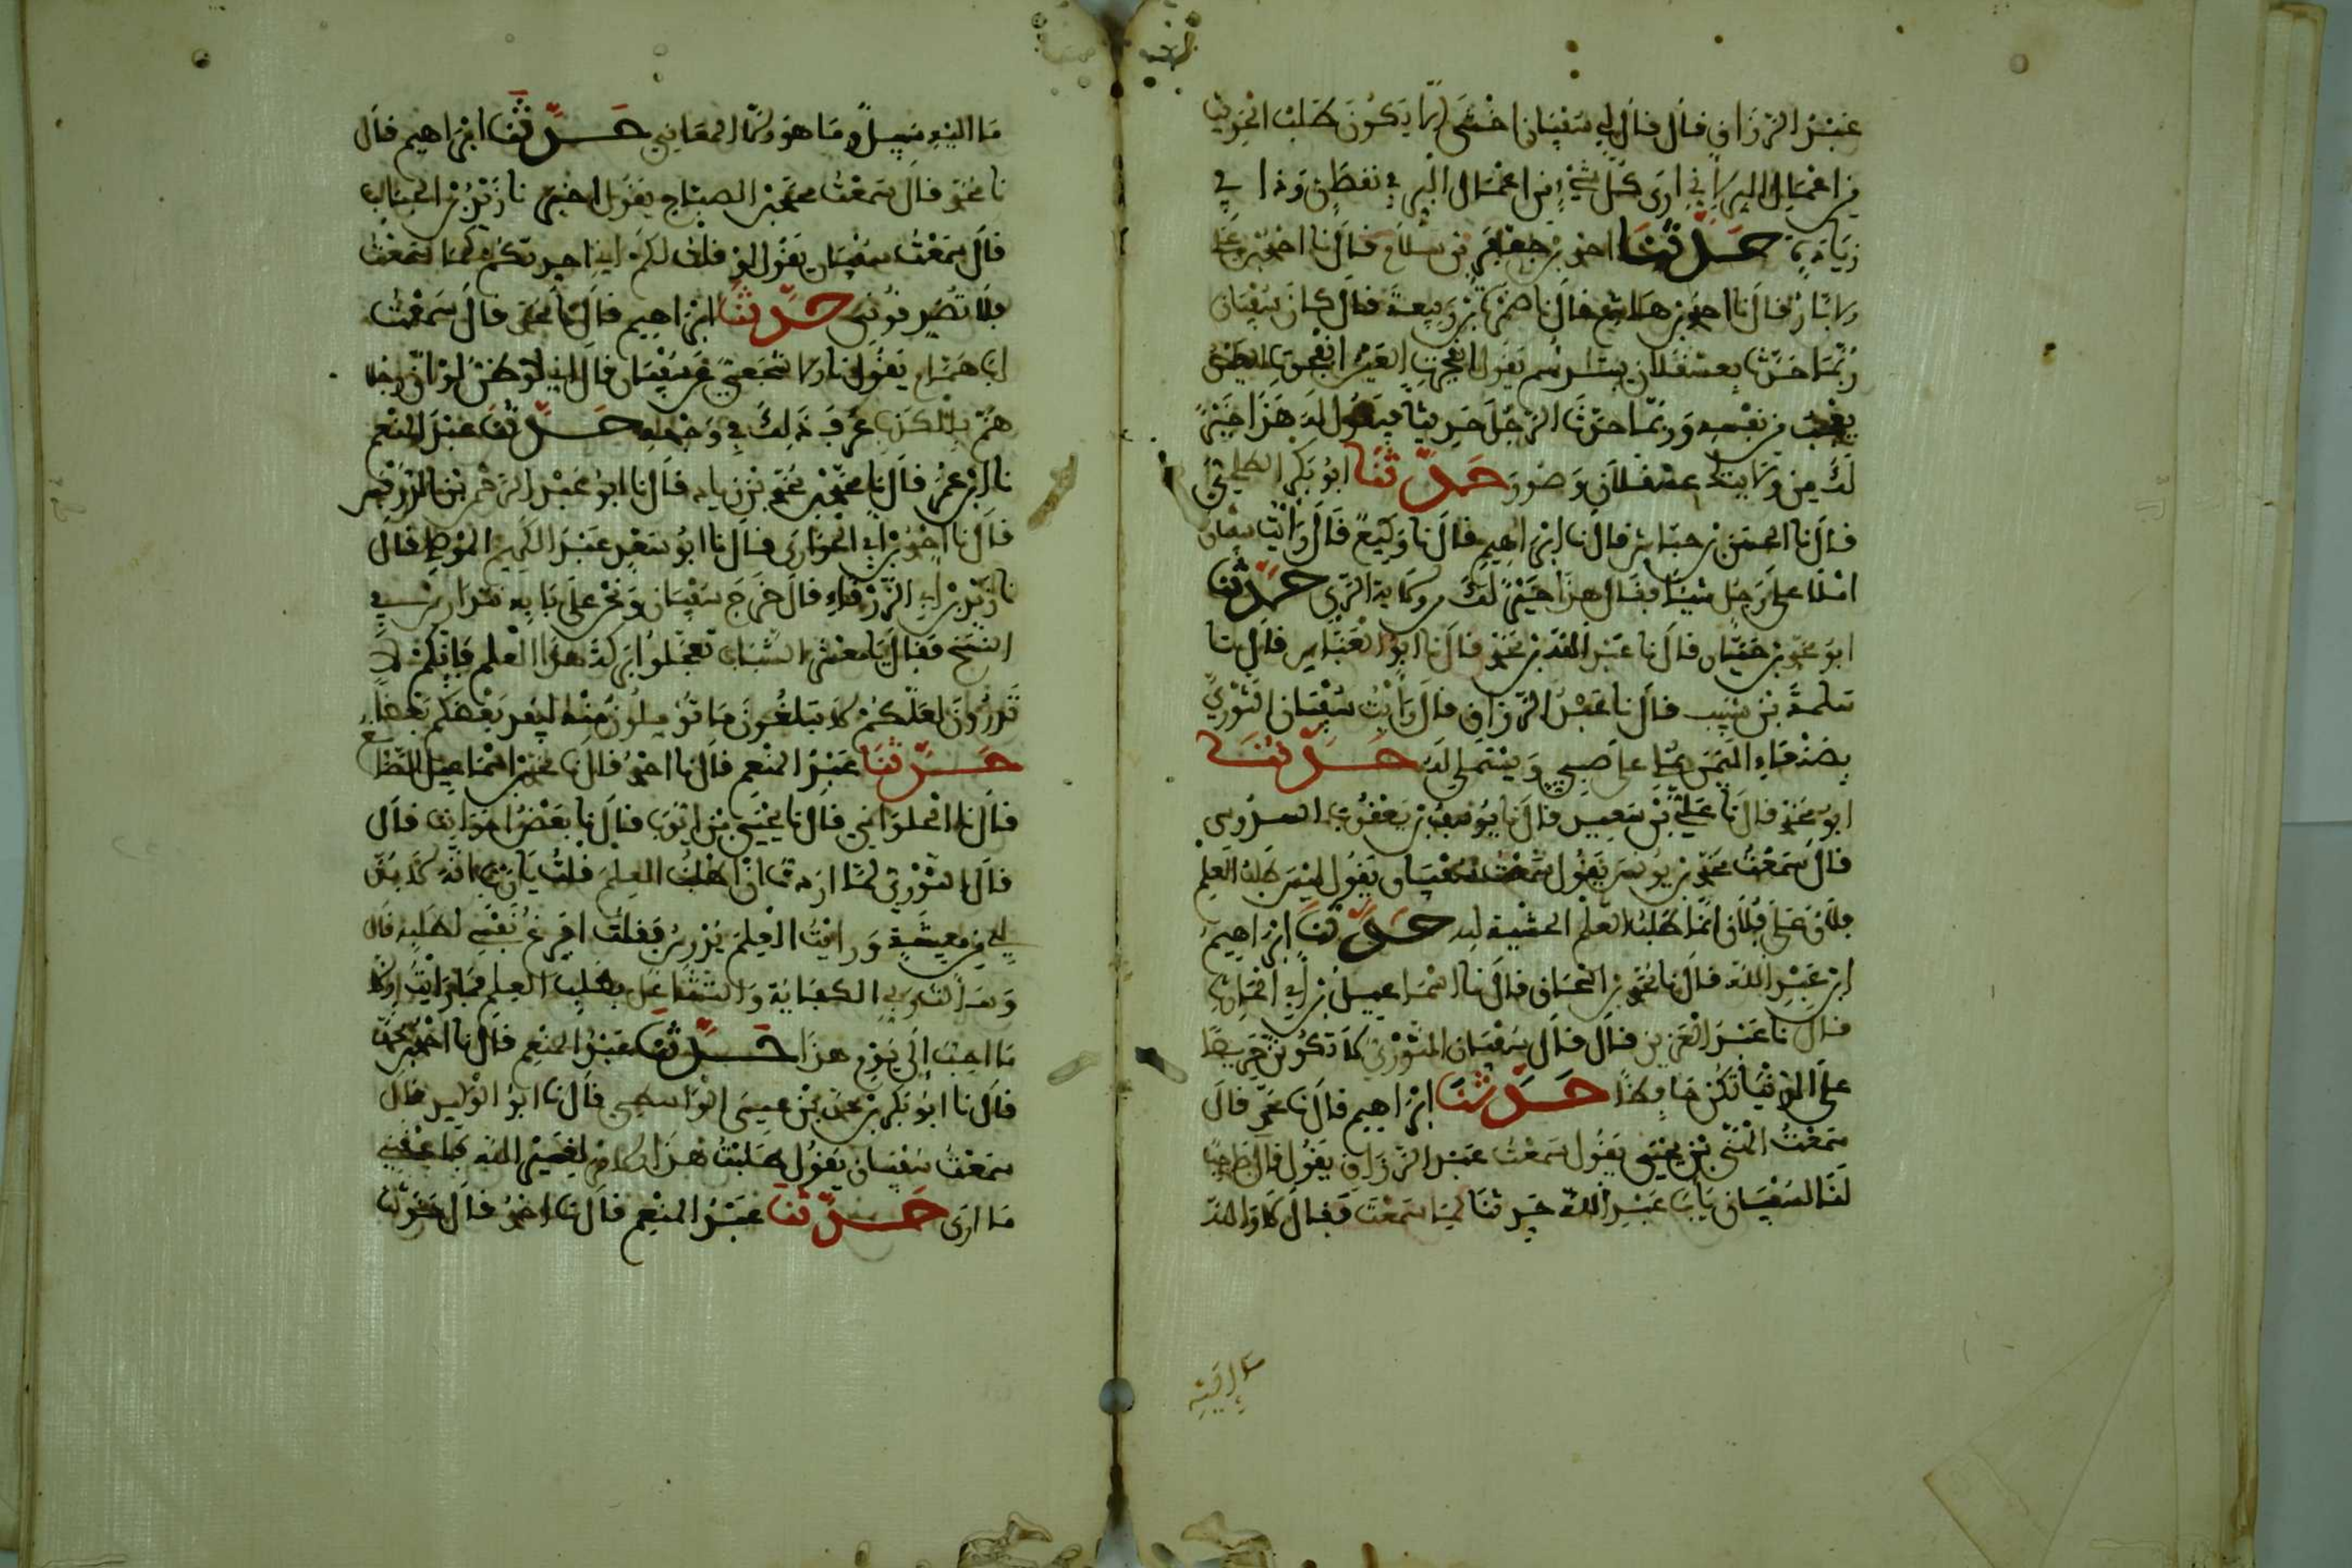 عبد الرزاق قال قال لي سفيان اخشى الا يكون طلب الحديث
من اعمال البر لاني ارى كل شيء من اعمال البر في نقص وذا في
زيادة حدثنا احمد بن جعفر بن سلام قال نا احمد بن علي
الابار قال نا احمد بن هاشم قال نا ضمرة بن ربيعة قال كان سفيان
ربما حدثنا بعسقلان يبتدئهم يقول انفجرت العيون انفجرت العيون
يعجب من نفسه وربما حدث الرجل حديثا فيقول له هذا خير
لك من ولايتك عسقلان وصور حدثنا ابو بكر الطلحي
قال نا الحسن بن حباش قال نا ابراهيم قال نا وكيع قال رايت سفيان
املا على رجل شيئا فقال هذا خير لك من ولاية الري حدثنا
ابو محمد بن حيان قال نا عبد الله بن محمد قال نا ابو العباس قال نا
سلمة بن شبيب قال نا عبد الرزاق قال رايت سفيان الثوري
بصنعاء اليمن يملي على صبي ويستملي له حدثنا
ابو محمد قال نا علي بن سعيد قال نا يوسف بن يعقوب السدوسي
قال سمعت محمد بن يونس يقول سمعت سفيان يقول ليس طلب العلم
فلان عن فلان انما طلب العلم الخشية لله حدثنا ابراهيم
ابن عبد الله قال نا محمد بن اسحاق قال نا اسماعيل بن ابي الحارث
قال نا عبد العزيز قال قال سفيان الثوري لا تكونن حريصا
على الدنيا تكن حافظا حدثنا ابراهيم قال نا محمد قال
سمعت المثنى بن يحيى يقول سمعت عبد الرزاق يقول قال صاحب
لنا لسفيان يابا عبد الله حدثنا كما سمعت فقال لا والله
ما اليه سبيل وما هو الا المعاني حدثنا ابراهيم قال
نا محمد قال سمعت محمد بن الصباح يقول اخبرنا زيد بن الحباب
قال سمعت سفيان يقول لو قلت لكم اني احدثكم كما سمعت
فلا تصدقوني حدثنا ابراهيم قال نا محمد قال سمعت
ابا همام يقول نا الاشجعي عن سفيان قال لو ان رجلا
هم بالكذب عرف ذلك في وجهه حدثنا عبد المنعم
نا ابن عمر قال نا محمد بن زياد قال نا ابو عبد الرحمن بن الدرفس
قال نا احمد بن ابي الحواري قال نا ابو سعيد عبد الكريم الموصلي قال
نا زيد بن ابي الزرقاء قال خرج سفيان ونحن على بابه نتدارس في
النسخ فقال يا معشر الشباب تعجلوا بركة هذا العلم فانكم لا
تدرون لعلكم لا تبلغون ما توملون منه ليفد بعضكم بعضا
حدثنا عبد المنعم قال نا احمد قال نا محمد بن اسماعيل الصائغ
قال نا الحلواني قال نا يحيى بن ايوب قال نا بعض اخواننا قال
قال الثوري لما اردت ان اطلب العلم قلت يارب انه لا بد
لي من معيشة ورايت العلم يدرس فقلت افرغ نفسي لطلبه قال
وسالت ربي الكفاية والتشاغل بطلب العلم فما رايت الا
ما احب الى يومي هذا حدثنا عبد المنعم قال نا احمد بن محمد
قال نا ابو بكر بن محمد بن عيسى الواسطي قال نا ابو الوليد قال
سمعت سفيان يقول طلبت هذا الامر لغير الله فاعقبني
ما ارى حدثنا عبد المنعم قال نا احمد قال حدثنا